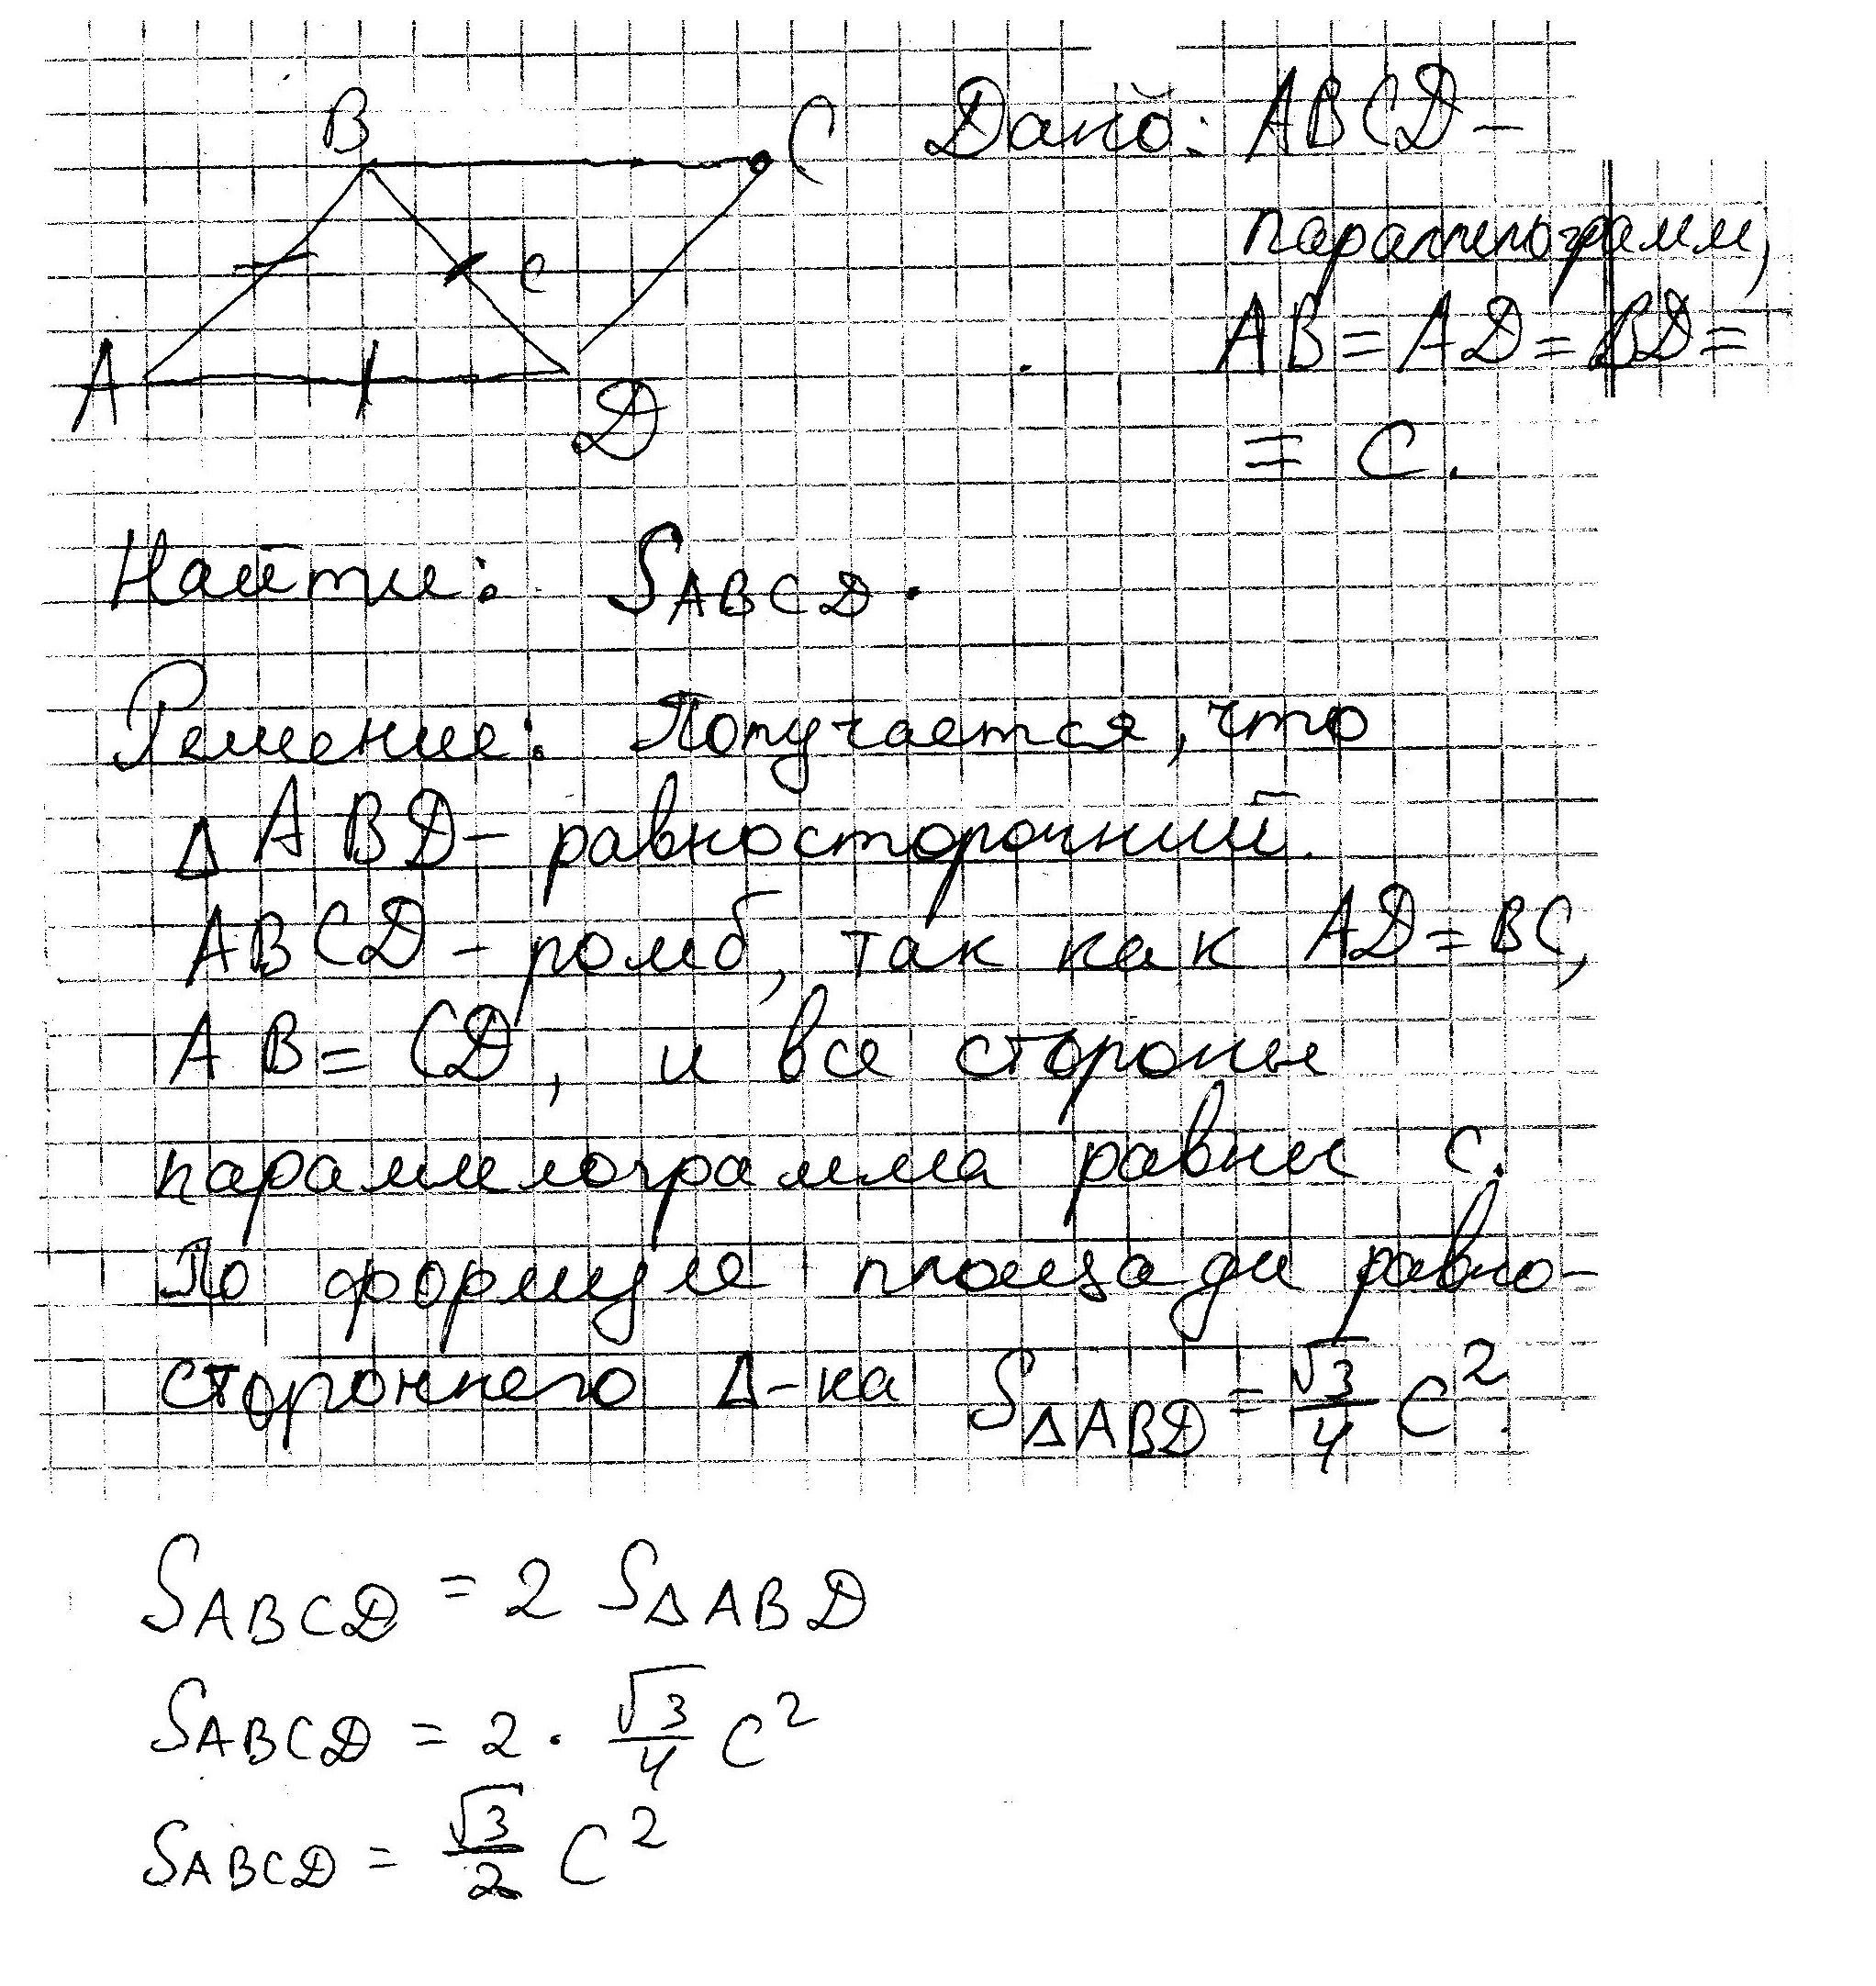 B
C
Дано: ABCD –
параллелограмм,
c
AB = AD = BD =
A
D
= C.
Найти: S ABCD.
Решение: Получается, что
Δ ABD – равносторонний.
ABCD – ромб, так как AD = BC,
AB = CD, и все стороны
параллелограмма равны c.
По формуле площади равно-
стороннего Δ-ка S ΔABD = √3/4 C².
S ABCD = 2 S ΔABD
S ABCD = 2 · √3/4 C²
S ABCD = √3/2 C²